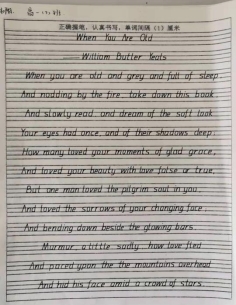 高一、班
正确握笔，认真书写，单词间隔（1）厘米
When You Are Old
—— William Butler Yeats
When you are old and grey and full of sleep
And nodding by the fire. take down this book
And slowly read. and dream of the soft look
Your eyes had once, and of their shadows deep.
How many loved your moments of glad grace,
And loved your beauty with love false or true,
But one man loved the pilgrim soul in you.
And loved the sorrows of your changing face.
And bending down beside the glowing bars.
Murmur. a little sadly. how love fled
And paced upon the the mountains overhead
And hid his face amid a crowd of stars